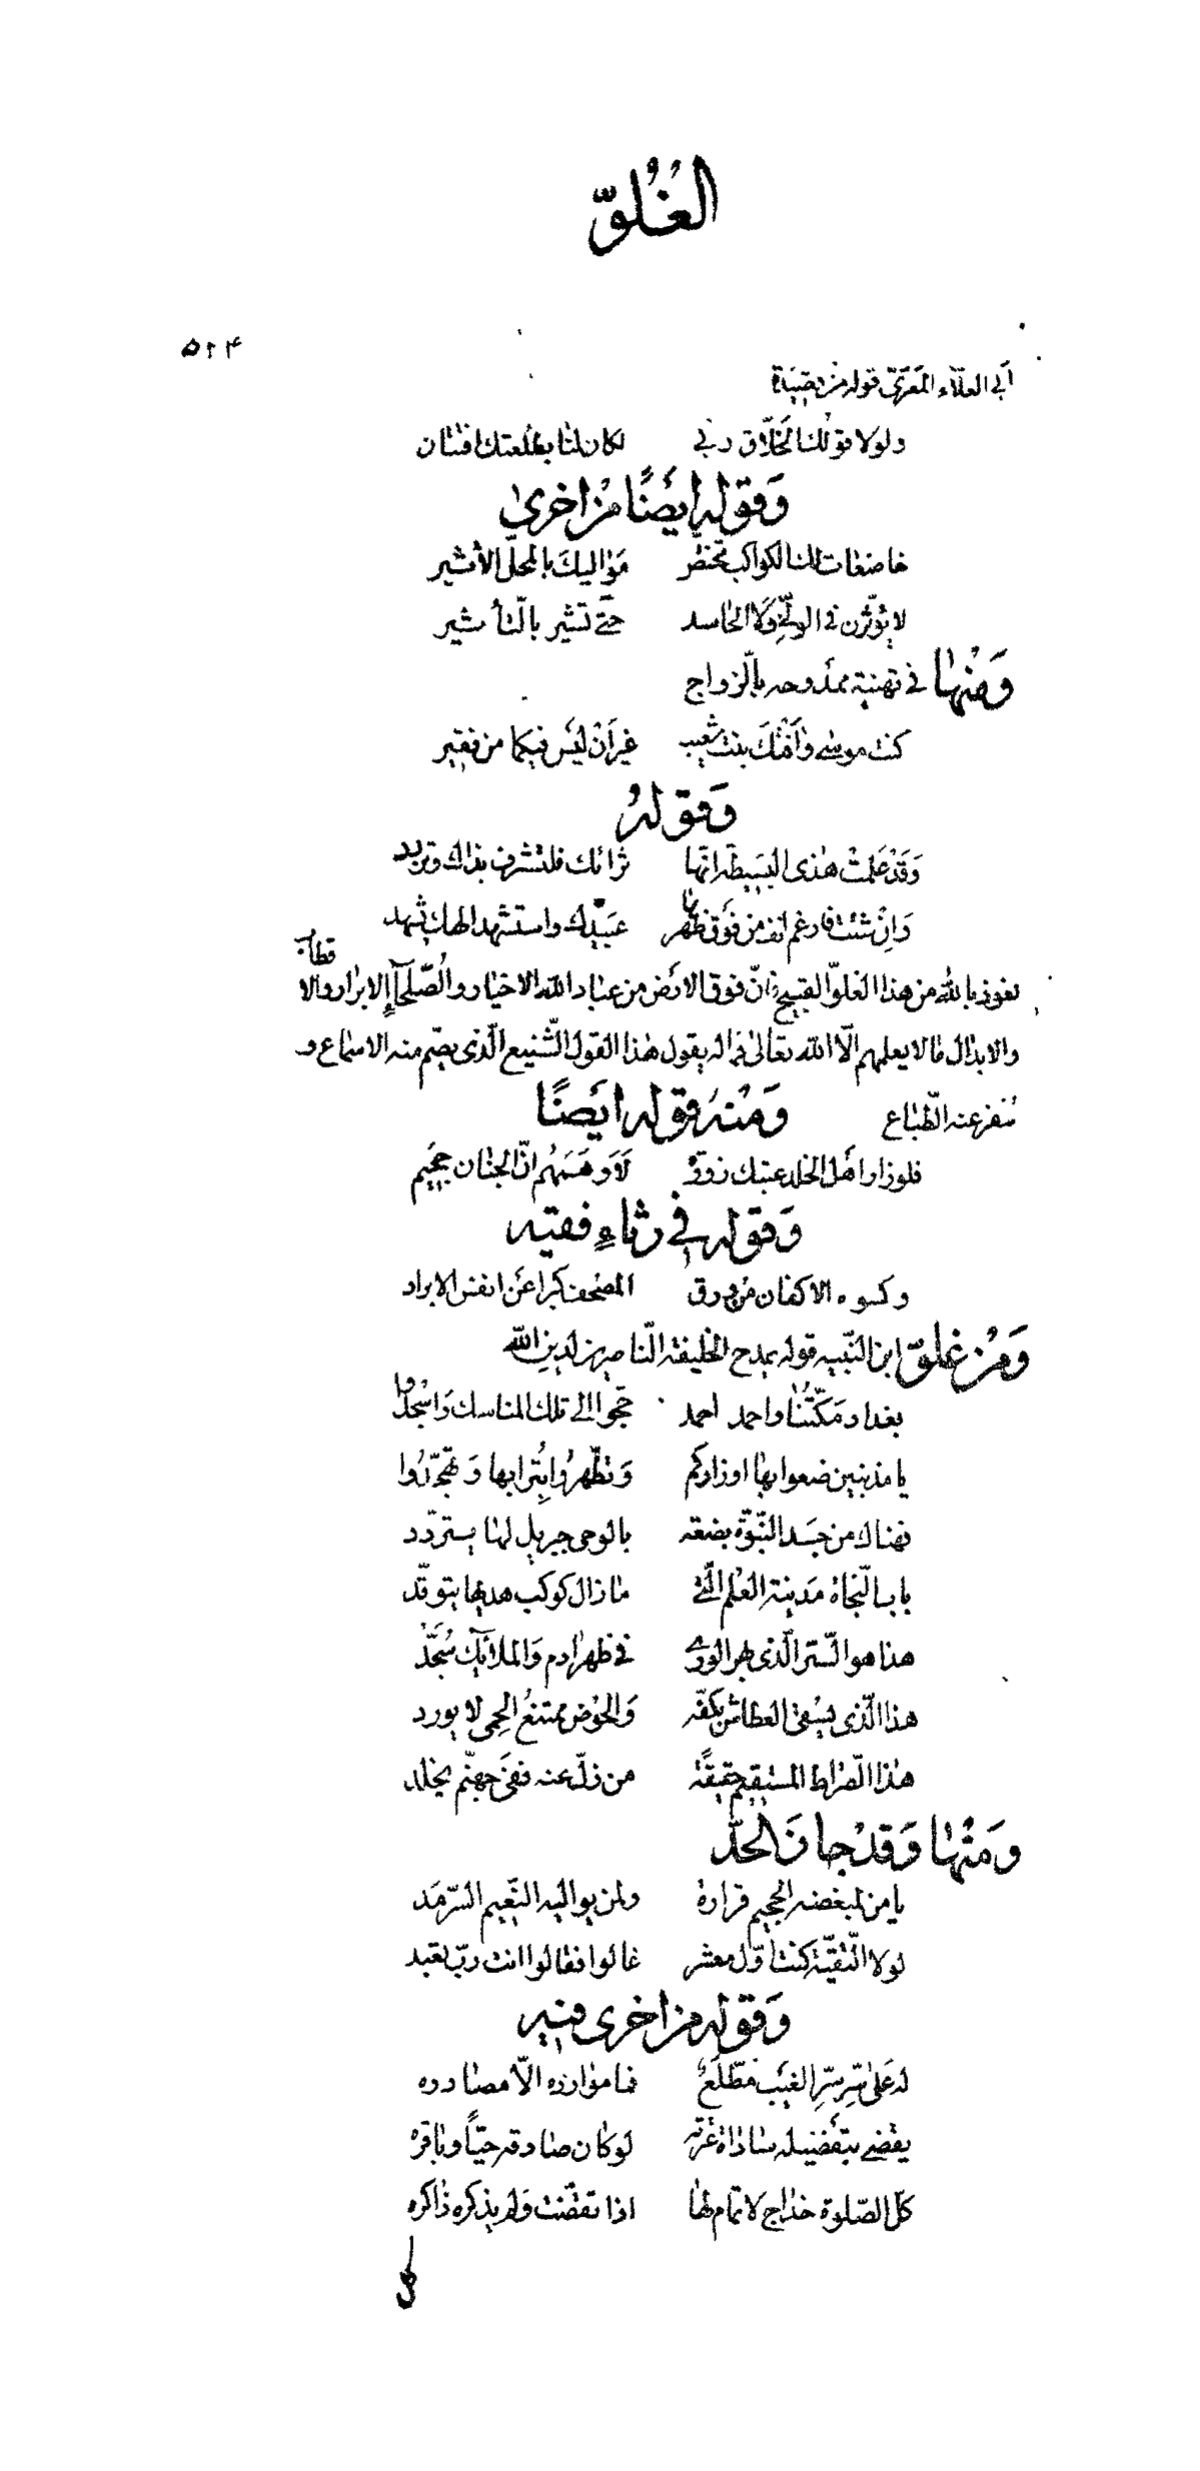 الغُلوّ
٥٢٤
أبي العلآء المعَرّي قوله من قصيَدة
ولولا قولك الخلّاق ربّي لكان لنا بطلعتك افتتان
وَقوله ايضًا من اخرى
خاضعات لك الكواكب تختصّ مَواليكَ بالمحلّ الأثير
لا يؤثّرن في الولي ولا الحاسد حتّى تشير بالتأثير
وَمنها في تهنية ممدوحه بالزواج
كنت موسى وافَتكَ بنت شعيب غير أنْ ليس فيكما من فقير
وَقولهُ
وَقَدْ عَلمتْ هذى البَسيطة انّها ترائك فلتشرف بذاك وتزيد
وَإن شئت فارغم انف من فَوق ظهرها عَبيدك واستشهد الهك يشهد
نعوذ بالله من هذا الغلوّ القبيح فانّ فوق الارض من عباد الله الاخيار والصّلحآء الابرار والاقطاب
والابدال ما لا يعلمهم الّا الله تعالى فما له يقول هذا القول الشّنيع الّذى يصمّ منه الاسماع و
تنفر عنه الطباع وَمنهُ قوله ايضًا
فلو زار اهل الخلد عتبك زورة لَاَوهَمَهُم انّ الجنان جحَيم
وَقوله في رثاءِ فقيه
وكسوه الاكفان من ورق المصحف كبرا عن انفس الابراد
وَمن غلوّ ابن النّبيه قوله يمدح الخليفة النّاصر لدين الله
بغداد مَكّتُنا واحمد احمد حجّوا الى تلك المناسك وَاسْجدُوا
يا مذنبين ضعوا بها اوزاركم وَتطّهرُوا بتُرابها وَتهجّدُوا
فهناك من جسَد النّبوّة بضعة بالوحى جبريل لها يتردّد
باب النّجاة مَدينة العلم الّتى ما زال كوكب هديها يتوقّد
هذا هو السّر الّذى بهر الورى في ظهر ادم وَالملآئك سُجّدُ
هذا الّذى يسقى العطاش بكفّه وَالحوض ممتنعُ الحِمى لا يورد
هذا الصّراط المستقيم حقيقًة من زلّ عنه ففى جهنّم يخلد
وَمنها وَقدْ جازَ الحدّ
يا من لمبغضه الجحيم قرارة ولمن يواليه النّعيم السّرمَد
لولا التّقيّة كنت اوّل معشر غالوا فقالوا انت ربّ يعبد
وَقوله من اخرى فيه
له عَلى سِرّ سِرّ الغيب مطّلعٌ فما موارده الّا مصادره
يقضى بتفضيله سادات عترته لو كان صادقه حيّاً وباقره
كلّ الصّلوة خداج لا تمام لها اذا تقضّت وَلم يذكره ذاكره